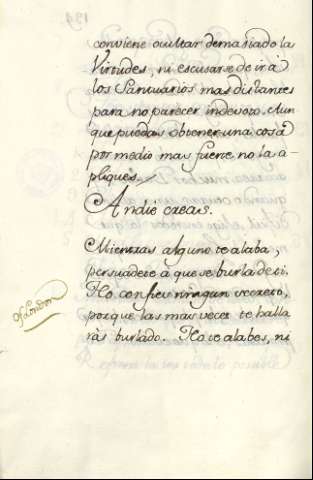 194
conviene ocultar demasiado las
Virtudes, ni escusarse de ir à
los Santuarios mas distantes
para no parecer indevoto. Aun
que puedas obtener una cosa
por medio mas fuerte no la a-
pliques.
A nadie creas.
Mientras alguno te alaba,
persuadete à que se burla de ti.
No confies ningun secreto,
porque las mas veces te halla
ràs burlado. No te alabes, ni